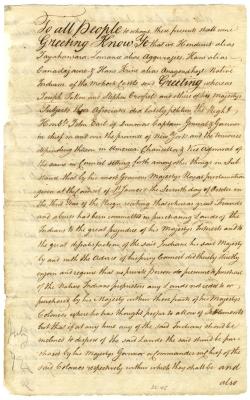 To all People to whom these presents shall come
Greeting Know Ye that we Hendrick alias
Tayahansara Lourance alias Agwiragies Hans alias
Canadagaure & Hans Krine alias Anagoodhoge Native
Indians of the Mohock Castle send Greeting whereas
Joseph Totten and Stephen Crossfield and others of his Majestys
Subjects have aforesaid did lately petition the Right
Honble John Earl of Dunmore Captain General & Governor
in chief in and over the province of New York and the terretories
depending thereon in America Chancellor & Vice Admiral of
the same in Council setting forth among other things in Sub
stance that by his most Gracious Majestys Royal proclamation
given at the Court of St James's the seventh day of October in
the third Year of his Reign reciting that whereas great Frauds
and abuses has been committed in purchasing Lands of the
Indians to the great prejudice of his Majestys Interests and to
the great dissatisfaction of the said Indians his said Majesty
by and with the Advice of his privy Council did thereby strictly
enjoin and require that no private Person do presume to purchase
of the Native Indians proprietors any Lands not ceded to or
purchased by his Majesty within those parts of his Majestys
Colonies where he has thought proper to allow of Settlements
but that if at any time any of the said Indians should be
inclined to dispose of the said Lands the same should be pur
chased by his Majestys Governor or Commander in Chief of the
said Colonies respectively within which they shall lie and
also